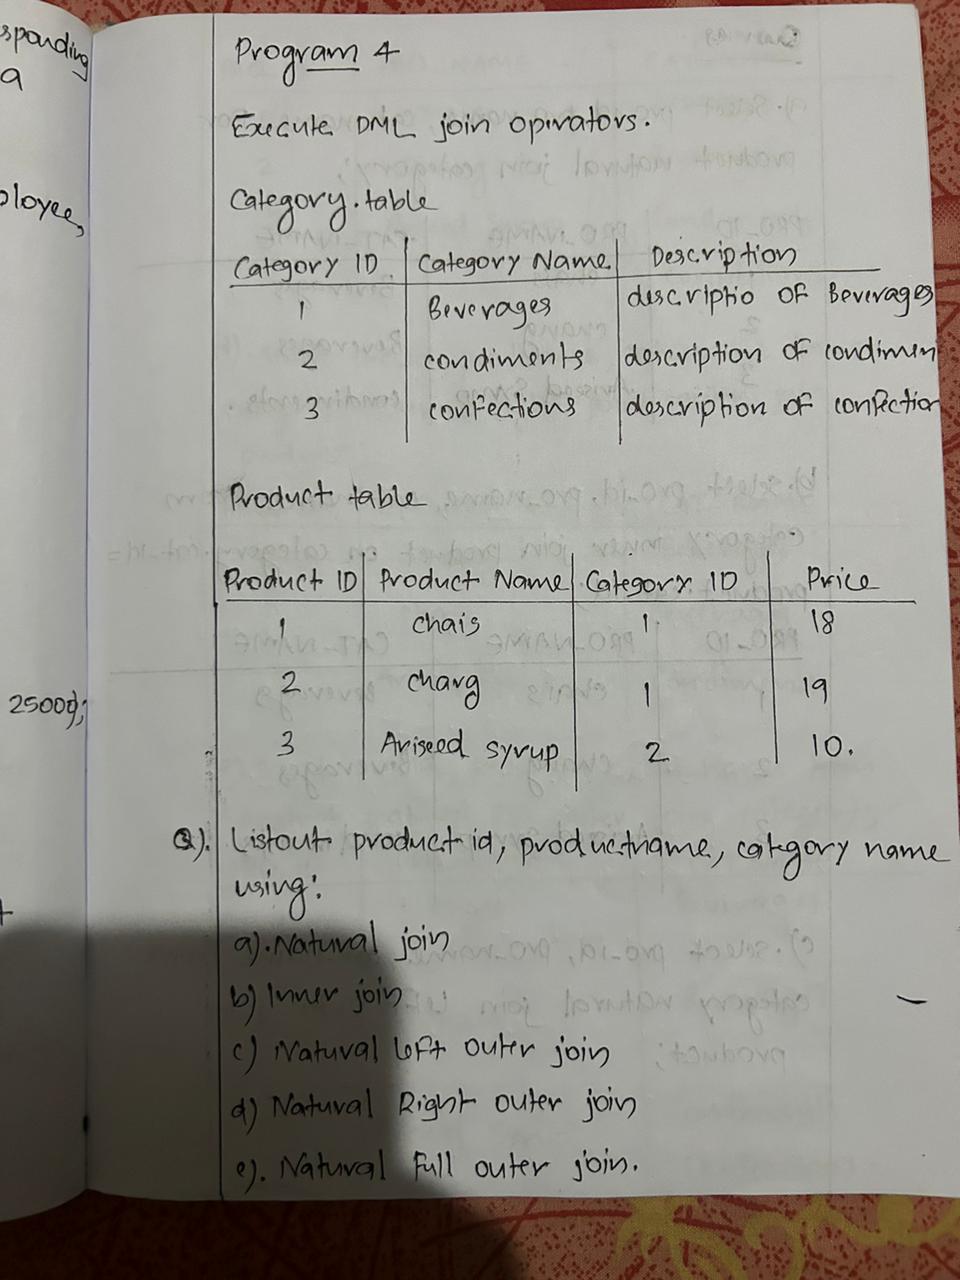 sponding
a
ployee,
25000;
Program 4
Execute DML join operators.
Category.table
Category ID Category Name Description
1 Beverages descriptio of Beverages
2 condiments description of condimen
3 confections description of confection
Product table
Product ID Product Name Category ID Price
1 chais 1. 18
2 charg 1 19
3 Ariseed syrup 2 10.
Q). Listout product id, productname, category name
using:
a). Natural join
b) Inner join
c) Natural left outer join
d) Natural Right outer join
e). Natural Full outer join.